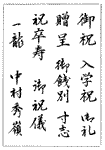 御祝　入学祝　御礼
贈呈　御餞別　寸志
祝卒寿　御祝儀
一龍　中村秀嶺